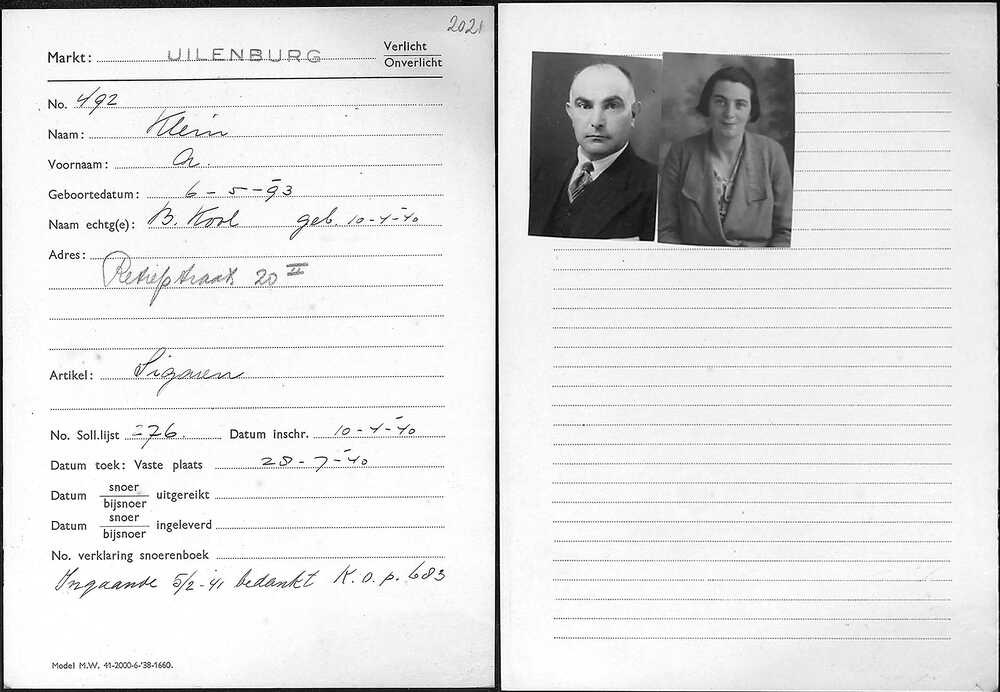 2021
Markt: UILENBURG Verlicht
Onverlicht
No. 492
Naam: Klein
Voornaam:
Geboortedatum: 6-5-93
Naam echtg(e): B. Kool geb. 10-4-40
Adres:
Retiefstraat 20 II
Artikel: Sigaren
No. Soll.lijst =76. Datum inschr. 10-4-40
Datum toek: Vaste plaats 28-7-40
Datum snoer
bijsnoer uitgereikt
Datum snoer
bijsnoer ingeleverd
No. verklaring snoerenboek
Ingaande 5/2-41 bedankt K.O.p. 683
Model M.W. 41-2000-6-'38-1660.